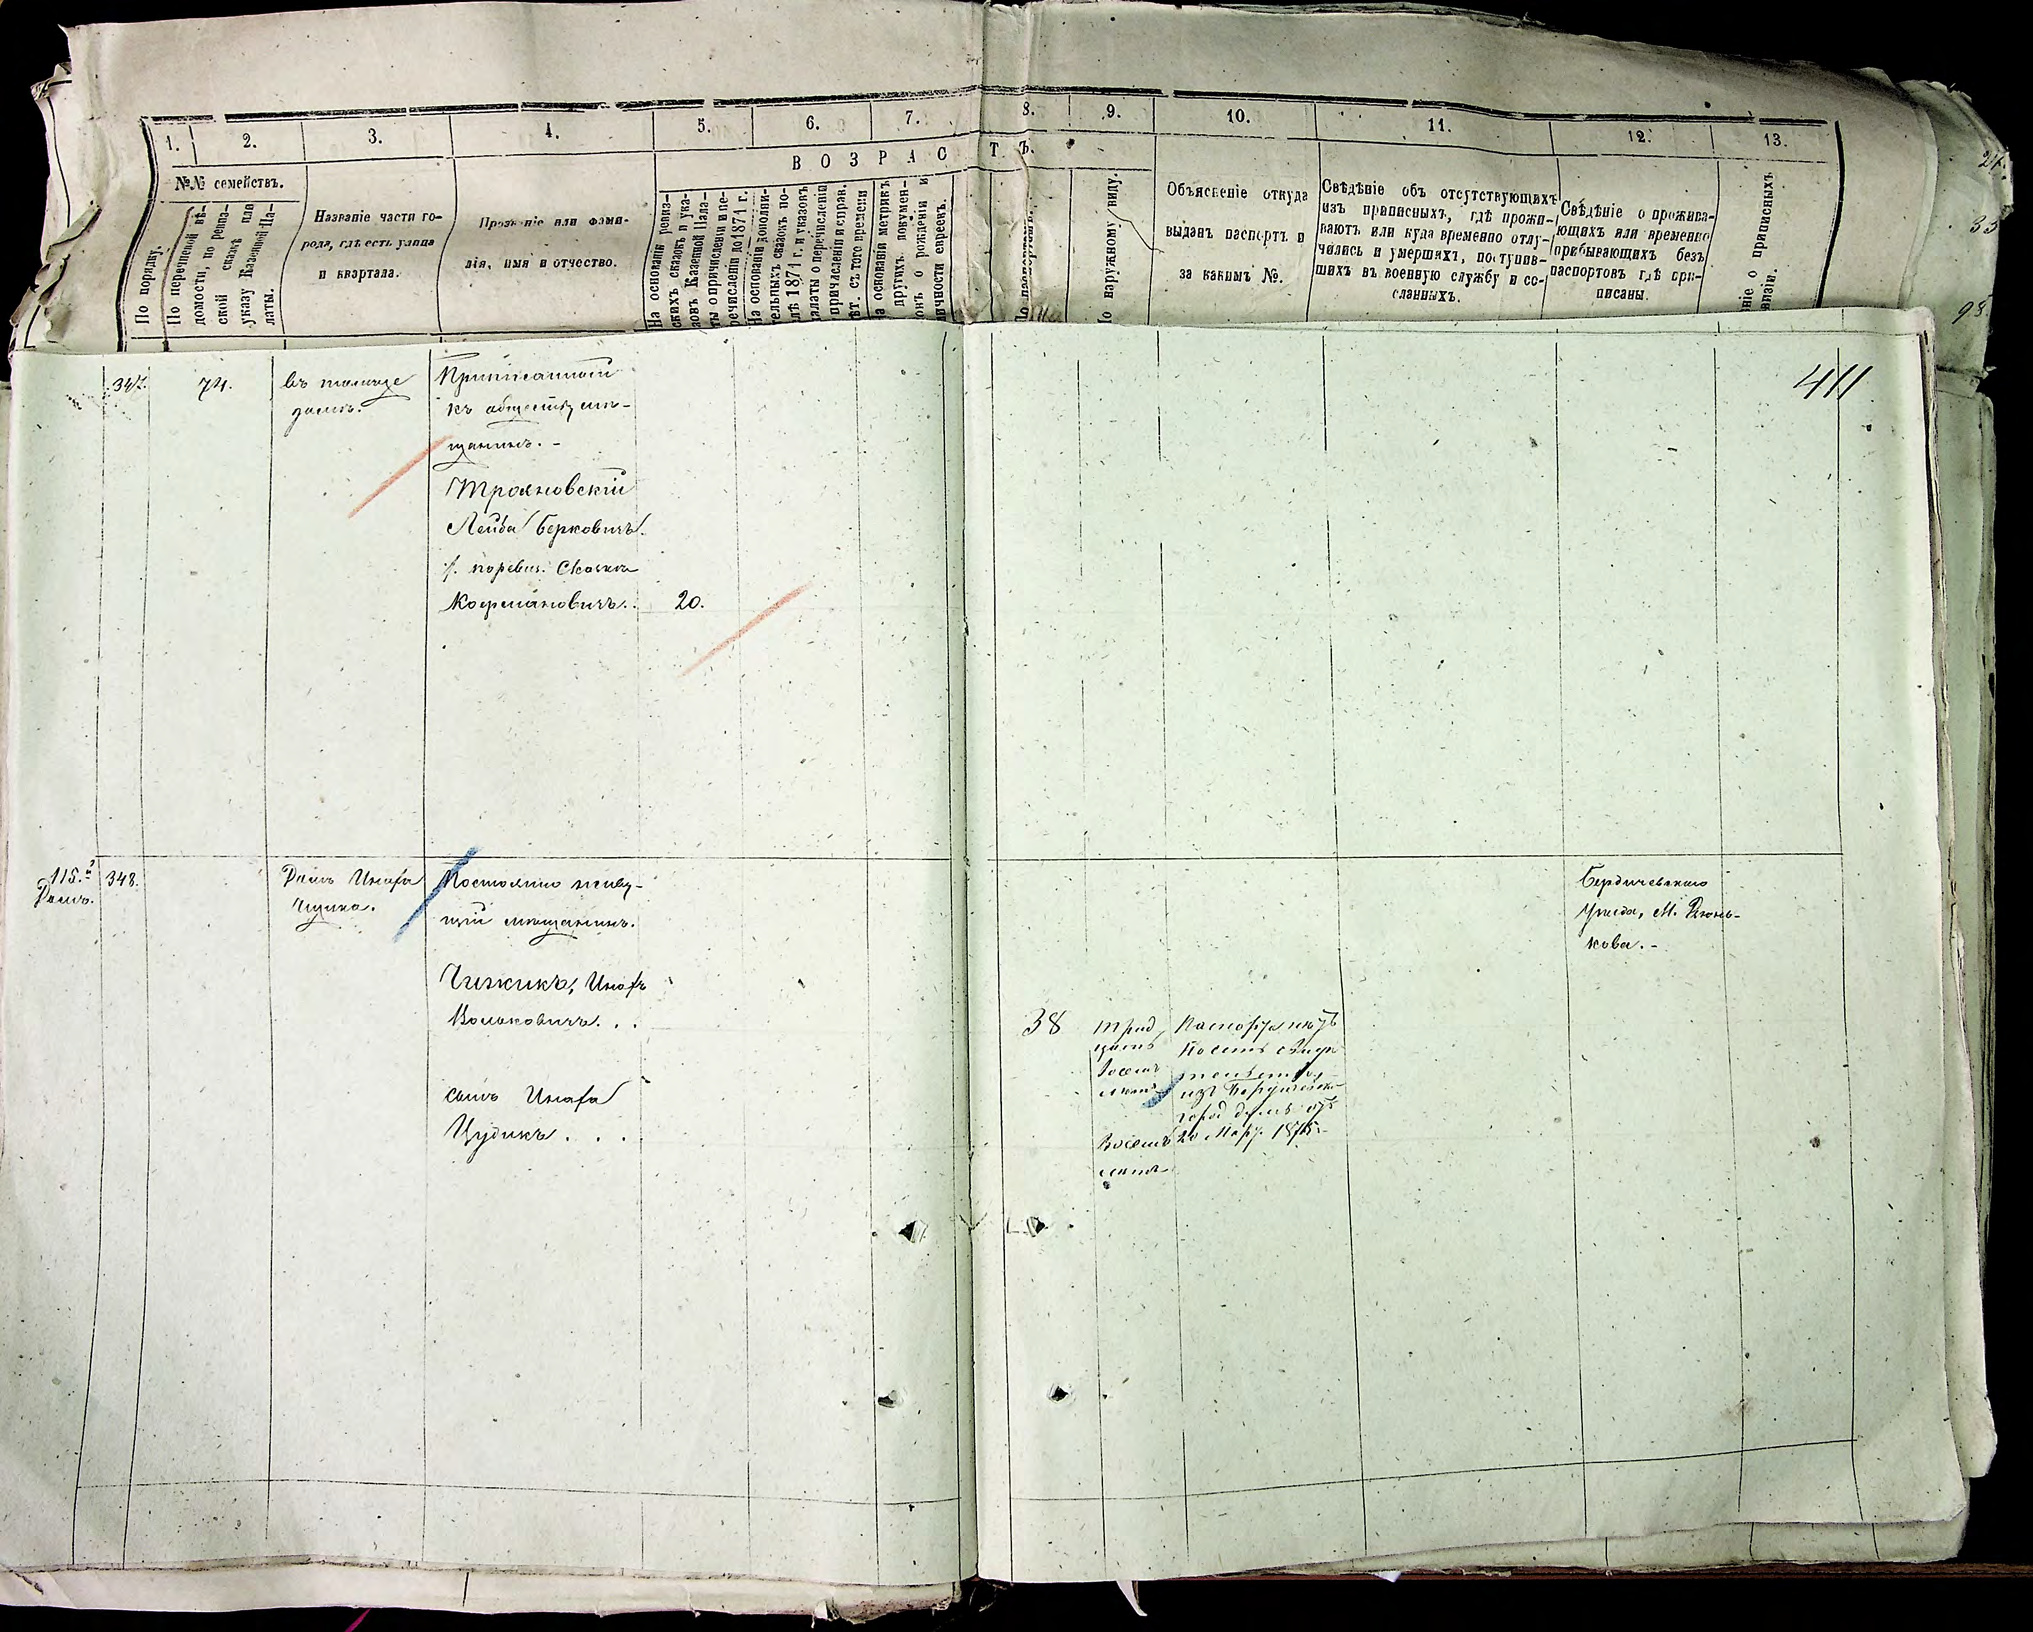 1. 2. 3. 4. 5. 6. 7. 8. 9. 10. 11. 12. 13.
ВОЗРАСТЪ.
№№ семействъ.
По порядку.
По перечневой вѣ-
домости, по ревиз-
ской сказкѣ или
указу Казенной Па-
латы.
Названіе части го-
рода, гдѣ есть улица
и квартала.
Прозваніе или фами-
лія, имя и отчество.
На основаніи ревиз-
скихъ сказокъ и ука-
зовъ Казенной Пала-
ты о причисленіи и пе-
речисленіи до 1871 г.
На основаніи дополни-
тельныхъ сказокъ по-
слѣ 1871 г. и указовъ
палаты о перечисленіи
причисленіи и справ.
лѣт. съ того времени
На основаніи метрикъ
другихъ докумен-
товъ о рожденіи и
личности евреевъ.
По наружному виду.
Объясненіе откуда
выданъ паспортъ и
за какимъ №.
Свѣдѣніе объ отсутствующихъ
изъ приписныхъ, гдѣ прожи-
ваютъ или куда временно отлу-
чились и умершихъ, поступив-
шихъ въ военную службу и со-
сланныхъ.
Свѣдѣніе о прожива-
ющихъ или временно
прибывающихъ безъ
паспортовъ гдѣ при-
писаны.
ніе о приписныхъ
визіи.
411
347. 74. въ томъ же
домѣ.
Приписанный
къ обществу мѣ-
щанинъ. -
Трояновскій
Лейба Берковичъ.
Кофмановичъ. 20.
115.й
Домъ.
348. Домъ Инафа
Чижика.
Постоянно живу-
щій мѣщанинъ.
Чижикъ, Инафъ
Вольковичъ. . .
38
трид
цать
восемь
лѣтъ
сынъ Инафа
Цудикъ . . .
восемь
лѣтъ
изъ Бердичевской
город думы отъ
20 Март. 1875 г.
Бердичевскаго
Уѣзда, М. Дзюнь-
кова. -